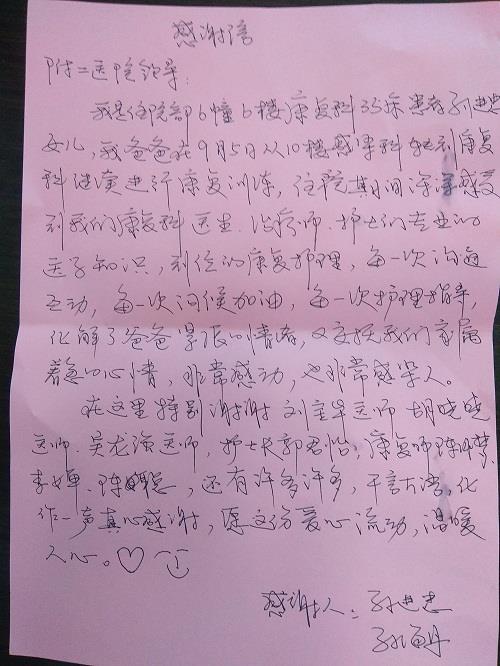 感谢信
附二医院领导：
我是住院部6幢6楼康复科35床患者孙进忠
女儿，我爸爸在9月5日从10楼感染科转到康复
科继续进行康复训练，住院其间深深感受
到我们康复科医生、治疗师、护士们专业的
医学知识，到位的康复护理，每一次沟通
互动，每一次问候加油，每一次护理指导，
化解了爸爸紧张的情绪，又安抚我们家属
着急的心情，非常感动，也非常感染人。
在这里特别谢谢刘宝华医师、胡晓晓
医师、吴龙强医师，护士长郭君怡，康复师陈
李婵、陈聪，还有许多许多，千言万语，化
作一声真心感谢，愿这份爱心流动，温暖
人心。
感谢人：孙进忠
孙